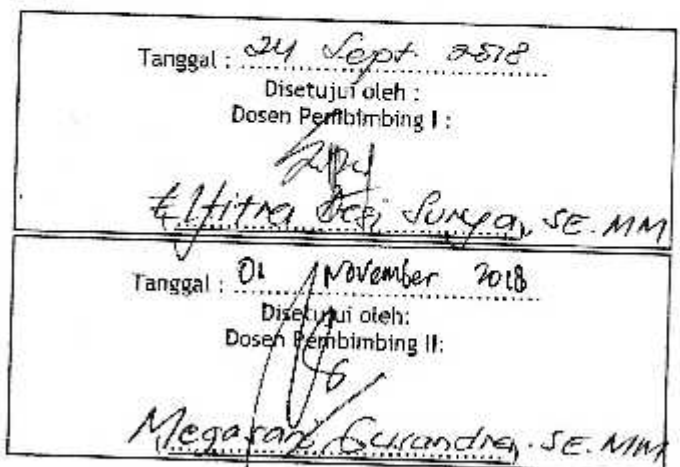 Tanggal : 24 Sept 2018
Disetujui oleh :
Dosen Pembimbing I :
Elfitra Desi Surya, SE.MM
Tanggal : 01 November 2018
Disetujui oleh:
Dosen Pembimbing II:
Megasari Gusandra, SE.MM